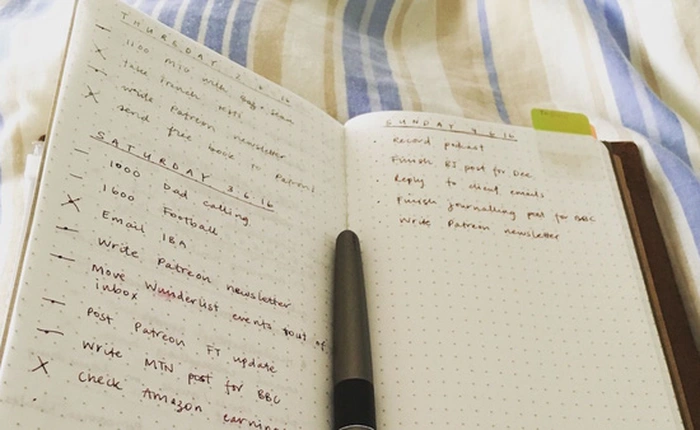 THURSDAY 2.6.16
1100 Mtg with
take
write Patreon newsletter
send free book to Patreon
SATURDAY 3.6.16
1000 Dad calling
1600 Football
Email IBA
Write Patreon newsletter
Move Wunderlist events out of
inbox
Post Patreon FT update
Write MTN post for BBC
Check Amazon earnings
SUNDAY 4.6.16
Record podcast
Finish BJ post for Dee
Reply to client emails
Finish journalling post for BBC
Write Patreon newsletter